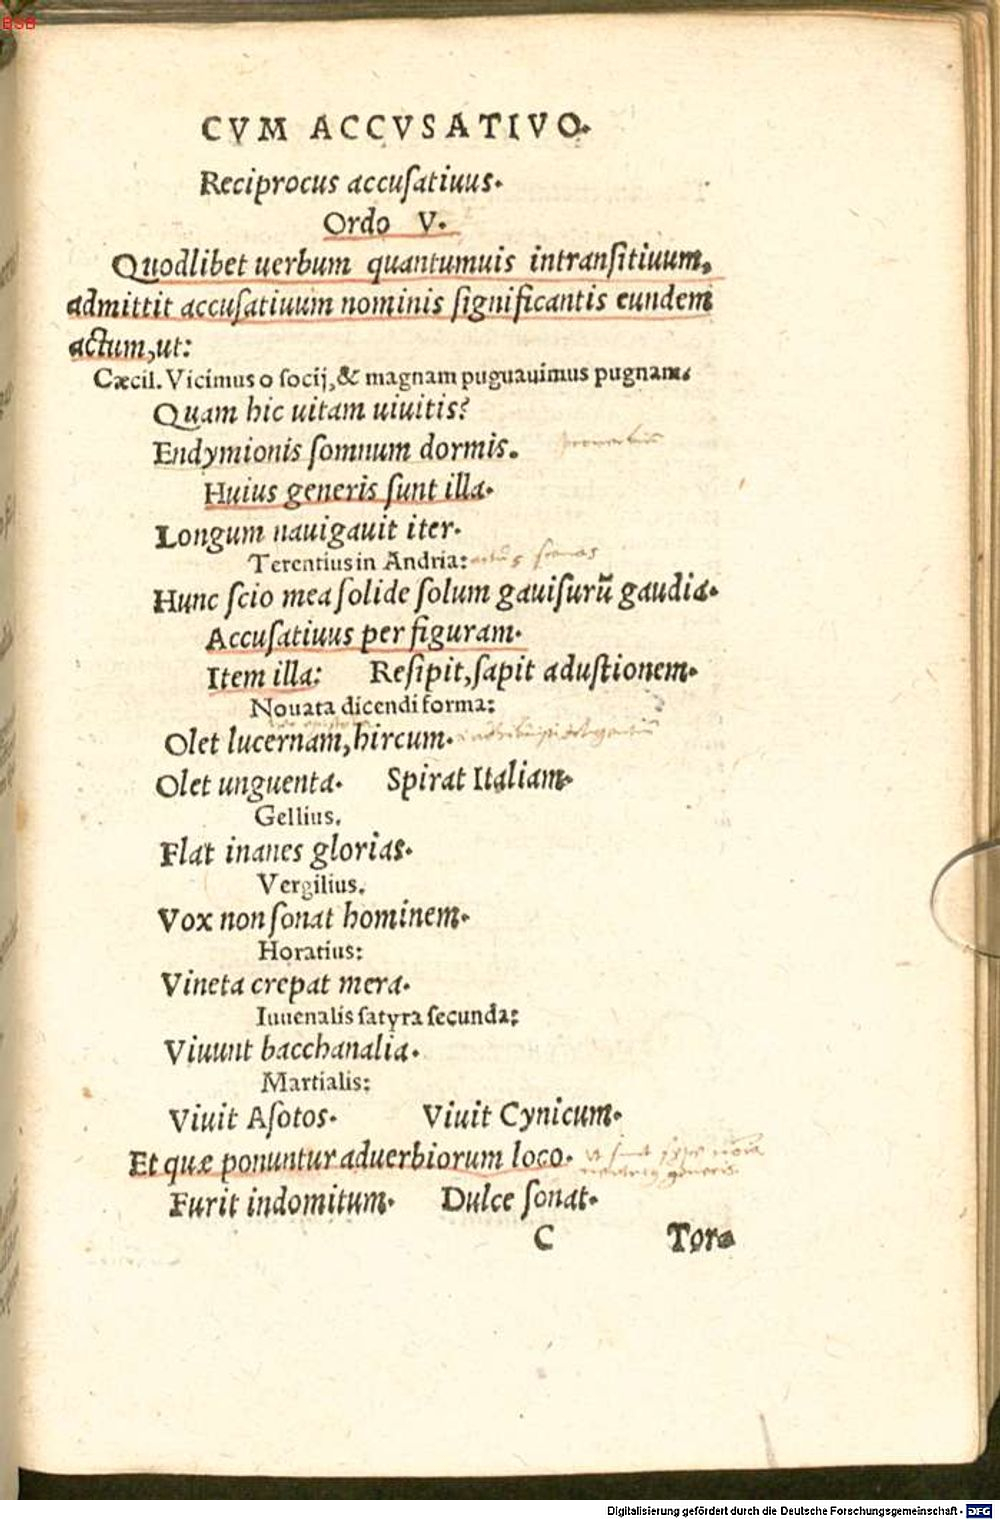 BSB
CVM ACCVSATIVO.
Reciprocus accuſatiuus.
Ordo V.
Quodlibet uerbum quantumuis intranſitiuum,
admittit accuſatiuum nominis ſignificantis eundem
actum, ut:
Cæcil. Vicimus o ſocij, & magnam puguauimus pugnam.
Quam hic uitam uiuitis?
Endymionis ſomnum dormis.
Huius generis ſunt illa.
Longum nauigauit iter.
Terentius in Andria:
Hunc ſcio mea ſolide ſolum gauiſurū gaudia.
Accuſatiuus per figuram.
Item illa: Reſipit, ſapit aduſtionem.
Nouata dicendi forma:
Olet lucernam, hircum.
Olet unguenta. Spirat Italiam.
Gellius.
Flat inanes glorias.
Vergilius.
Vox non ſonat hominem.
Horatius:
Vineta crepat mera.
Iuuenalis ſatyra ſecunda:
Viuunt bacchanalia.
Martialis:
Viuit Aſotos. Viuit Cynicum.
Et quæ ponuntur aduerbiorum loco.
Furit indomitum. Dulce ſonat.
C Tor-
Digitalisierung gefördert durch die Deutsche Forschungsgemeinschaft - DFG